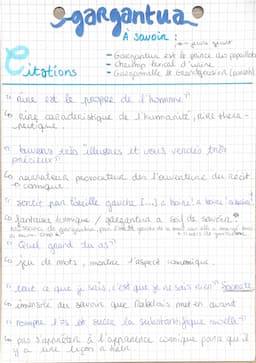 gargantua
À savoir :
- Gargantua est le prince des papillots
- champ lexical d'urine
- Gargamelle et Grandgousier (parents)
Citations
" rire est le propre de l'homme "
↳ rire caractéristique de l'humanité, rire théra-
peutique
" buveurs très illustres et vous vérolés très
précieux "
↳ narrateur provocateur dès l'ouverture du récit
→ comique
" sortit par l'oreille gauche [...] à boire ! à boire ! à boire ! "
↳ fantaisie comique / gargantua a soif de savoir
" Quel grand tu as "
↳ jeu de mots, montre l'aspect comique
" tout ce que je sais, c'est que je ne sais rien " Socrate
↳ immensité du savoir que Rabelais met en avant
" rompre l'os et sucer la substantifique moelle "
↳ pas s'arrêter à l'apparence comique parce qu'il
y a une leçon à tirer